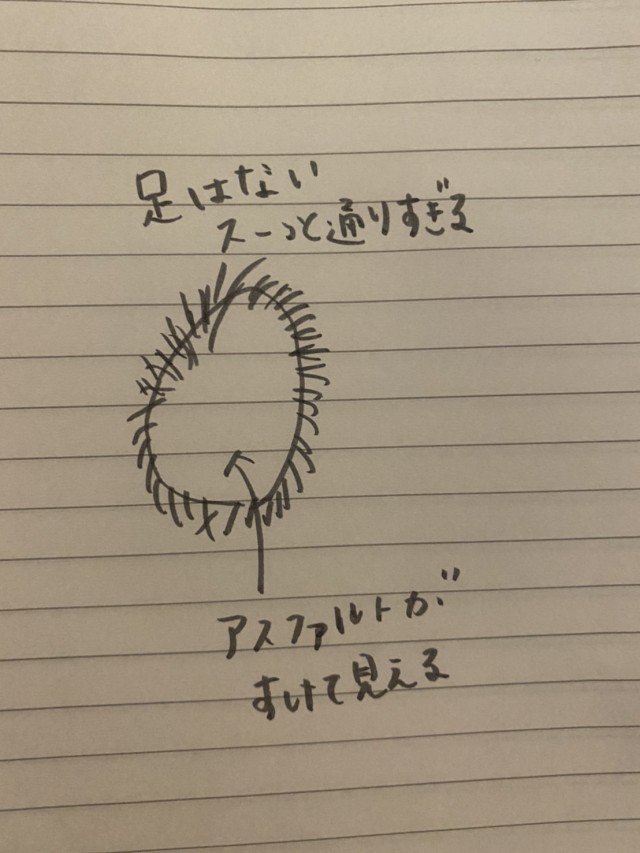 足はない
スーっと通りすぎる
アスファルトが
すけて見える